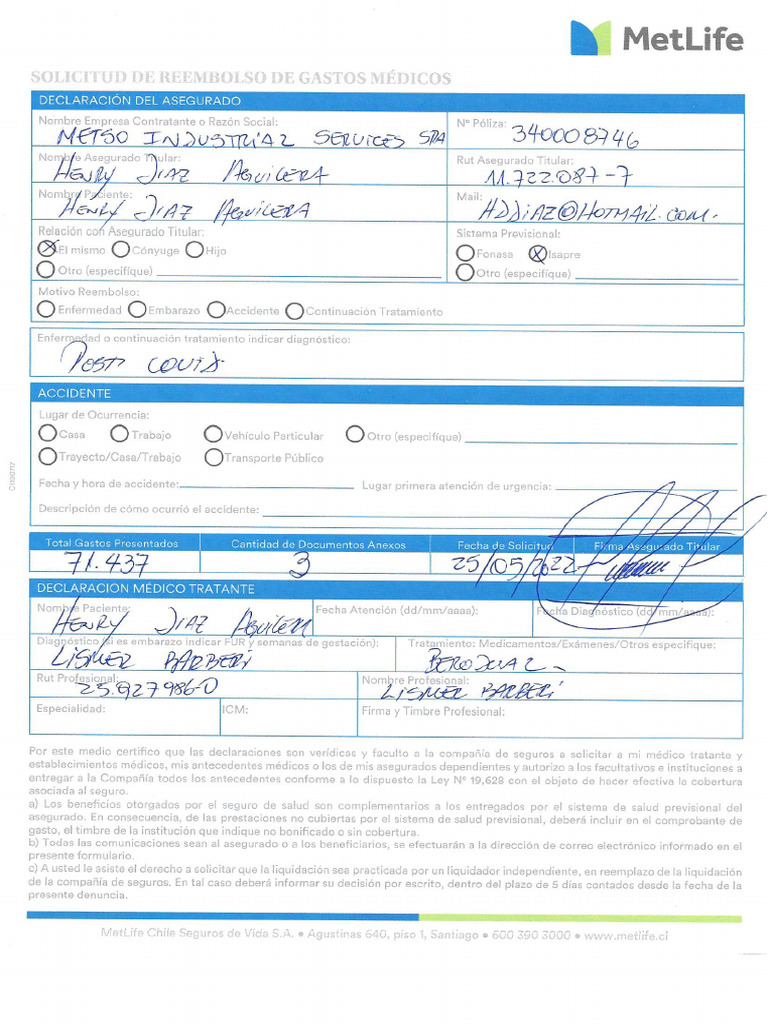 MetLife
SOLICITUD DE REEMBOLSO DE GASTOS MÉDICOS
DECLARACIÓN DEL ASEGURADO
Nombre Empresa Contratante o Razón Social: Nº Póliza:
METSO INDUSTRIAL SERVICES SPA 340008746
Nombre Asegurado Titular: Rut Asegurado Titular:
HENRY DIAZ AGUILERA 11.722.087-7
Nombre Paciente: Mail:
HENRY DIAZ AGUILERA HDDIAZ@HOTMAIL.COM.
Relación con Asegurado Titular: Sistema Previsional:
El mismo Cónyuge Hijo Fonasa Isapre
Otro (especifíque) Otro (especifíque)
Motivo Reembolso:
Enfermedad Embarazo Accidente Continuación Tratamiento
Enfermedad o continuación tratamiento indicar diagnóstico:
POST COVID
ACCIDENTE
Lugar de Ocurrencia:
Casa Trabajo Vehículo Particular Otro (especifíque)
Trayecto/Casa/Trabajo Transporte Público
Fecha y hora de accidente: Lugar primera atención de urgencia:
Descripción de cómo ocurrió el accidente:
Total Gastos Presentados Cantidad de Documentos Anexos Fecha de Solicitud Firma Asegurado Titular
71.437 3 25/05/2022
DECLARACION MÉDICO TRATANTE
Nombre Paciente: Fecha Atención (dd/mm/aaaa): Fecha Diagnóstico (dd/mm/aaaa):
HENRY DIAZ AGUILERA
Diagnóstico (si es embarazo indicar FUR y semanas de gestación): Tratamiento: Medicamentos/Exámenes/Otros especifique:
LISMER BARBERI BERODUAL
Rut Profesional: Nombre Profesional:
25.827986-0 LISMER BARBERI
Especialidad: ICM: Firma y Timbre Profesional:
Por este medio certifico que las declaraciones son verídicas y faculto a la compañía de seguros a solicitar a mi médico tratante y
establecimientos médicos, mis antecedentes médicos o los de mis asegurados dependientes y autorizo a los facultativos e instituciones a
entregar a la Compañía todos los antecedentes conforme a lo dispuesto la Ley Nº 19,628 con el objeto de hacer efectiva la cobertura
asociada al seguro.
a) Los beneficios otorgados por el seguro de salud son complementarios a los entregados por el sistema de salud previsional del
asegurado. En consecuencia, de las prestaciones no cubiertas por el sistema de salud previsional, deberá incluir en el comprobante de
gasto, el timbre de la institución que indique no bonificado o sin cobertura.
b) Todas las comunicaciones sean al asegurado o a los beneficiarios, se efectuarán a la dirección de correo electrónico informado en el
presente formulario.
c) A usted le asiste el derecho a solicitar que la liquidación sea practicada por un liquidador independiente, en reemplazo de la liquidación
de la compañía de seguros. En tal caso deberá informar su decisión por escrito, dentro del plazo de 5 días contados desde la fecha de la
presente denuncia.
MetLife Chile Seguros de Vida S.A. • Agustinas 640, piso 1, Santiago • 600 390 3000 • www.metlife.cl